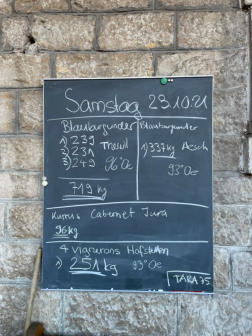 Samstag 23.10.21
Blauburgunder
1) 239 Trasul
2) 231
3) 249 96°Oe
719 kg
Blauburgunder
1) 337kg Aesch
93°Oe
Kurrus Cabernet Jura
96kg
4 vignerons Hofstetten
1) 251kg 93°Oe
TARA 75